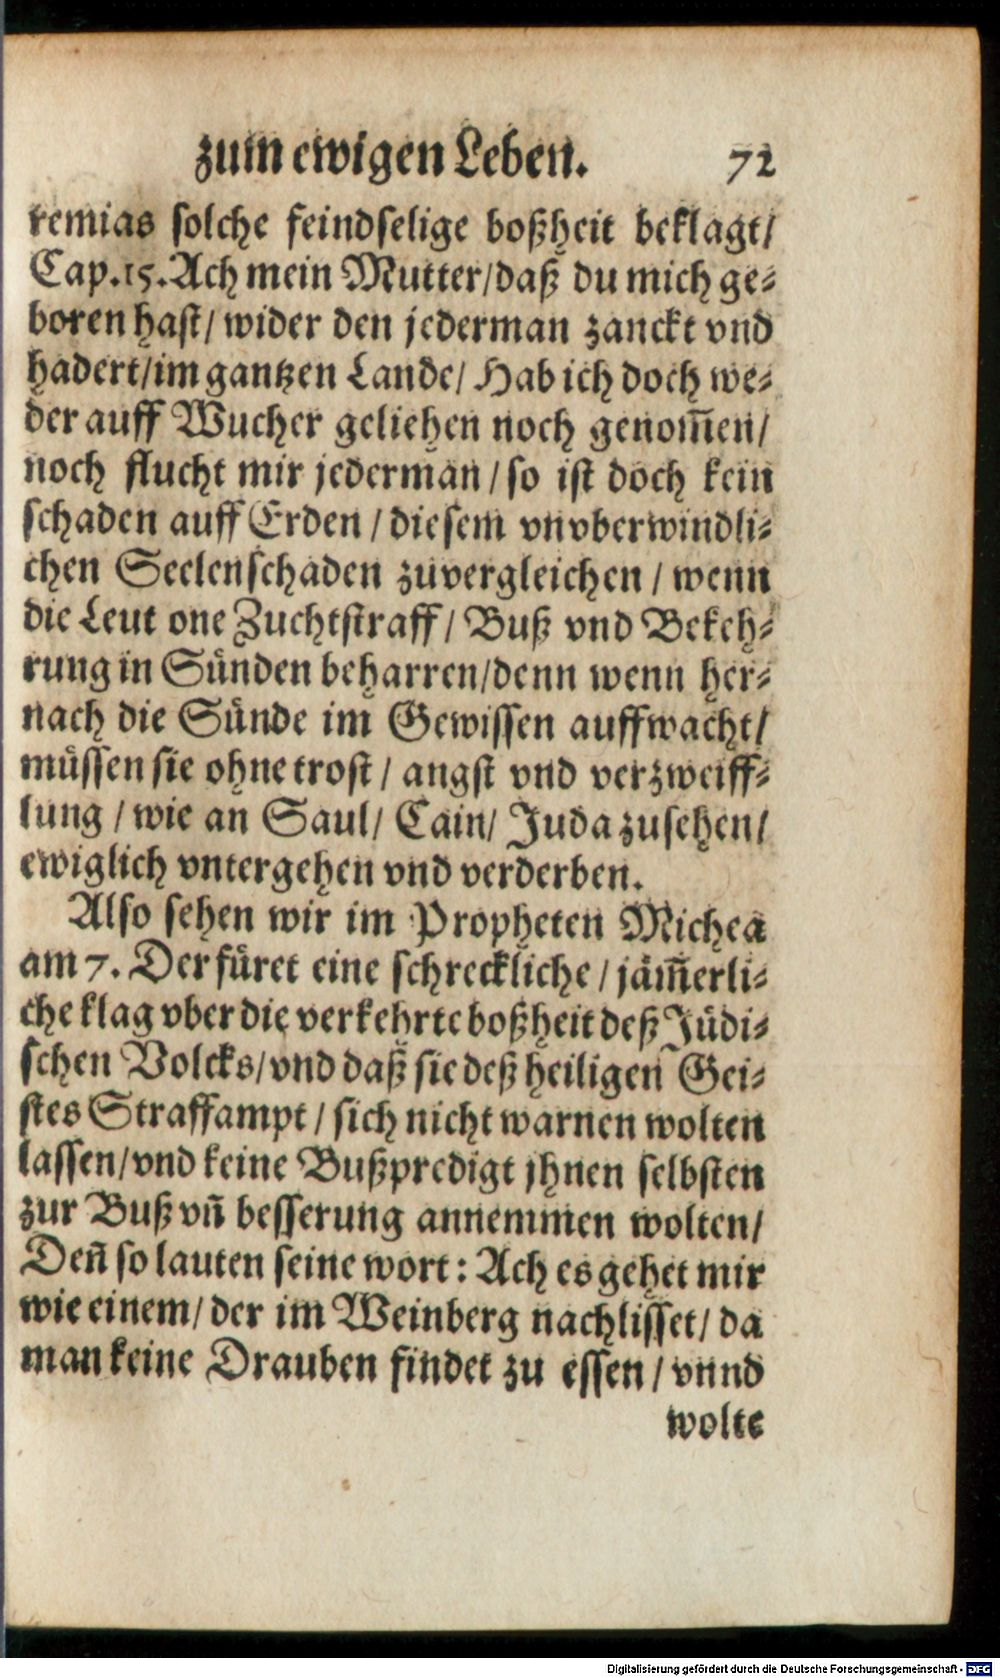 zum ewigen Leben. 72
remias solche feindselige boßheit beklagt/
Cap.15. Ach mein Mutter/daß du mich ge-
boren hast/ wider den jederman zanckt vnd
hadert/im gantzen Lande/ Hab ich doch we-
der auff Wucher geliehen noch genom̃en/
noch flucht mir jederman/ so ist doch kein
schaden auff Erden / diesem vnvberwindli-
chen Seelenschaden zuvergleichen / wenn
die Leut one Zuchtstraff/ Buß vnd Bekeh-
rung in Sünden beharren/denn wenn her-
nach die Sünde im Gewissen auffwacht/
müssen sie ohne trost / angst vnd verzweiff-
lung / wie an Saul/ Cain/ Juda zusehen/
ewiglich vntergehen vnd verderben.
Also sehen wir im Propheten Michea
am 7. Der füret eine schreckliche / jäm̃erli-
che klag vber die verkehrte boßheit deß Jüdi-
schen Volcks/vnd daß sie deß heiligen Gei-
stes Straffampt / sich nicht warnen wolten
lassen/vnd keine Bußpredigt jhnen selbsten
zur Buß vñ besserung annemmen wolten/
Deñ so lauten seine wort: Ach es gehet mir
wie einem/ der im Weinberg nachlisset/ da
man keine Drauben findet zu essen / vnnd
wolte
Digitalisierung gefördert durch die Deutsche Forschungsgemeinschaft - DFG